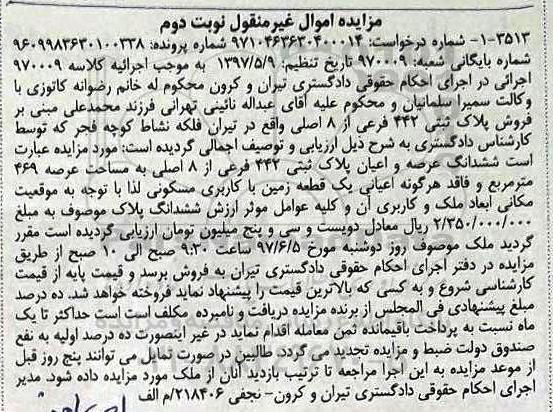 مزایده اموال غیرمنقول نوبت دوم
۱-۳۵۱۳- شماره درخواست: ۹۷۱۰۴۶۳۶۳۰۴۰۰۰۱۴ شماره پرونده: ۹۶۰۹۹۸۳۶۳۰۱۰۰۳۳۸
شماره بایگانی شعبه: ۹۷۰۰۰۹ تاریخ تنظیم: ۱۳۹۷/۵/۹ به موجب اجرائیه کلاسه ۹۷۰۰۰۹
اجرائی در اجرای احکام حقوقی دادگستری تیران و کرون محکوم له خانم رضوانه کاتوزی با
وکالت سمیرا سلمانیان و محکوم علیه آقای عبداله نائینی تهرانی فرزند محمدعلی مبنی بر
فروش پلاک ثبتی ۴۴۲ فرعی از ۸ اصلی واقع در تیران فلکه نشاط کوچه فجر که توسط
کارشناس دادگستری به شرح ذیل ارزیابی و توصیف اجمالی گردیده است: مورد مزایده عبارت
است ششدانگ عرصه و اعیان پلاک ثبتی ۴۴۲ فرعی از ۸ اصلی به مساحت عرصه ۴۶۹
مترمربع و فاقد هرگونه اعیانی یک قطعه زمین با کاربری مسکونی لذا با توجه به موقعیت
مکانی ابعاد ملک و کاربری آن و کلیه عوامل موثر ارزش ششدانگ پلاک موصوف به مبلغ
۲/۳۵۰/۰۰۰/۰۰۰ ریال معادل دویست و سی و پنج میلیون تومان ارزیابی گردیده است مقرر
گردید ملک موصوف روز دوشنبه مورخ ۹۷/۶/۵ ساعت ۹:۳۰ صبح الی ۱۰ صبح از طریق
مزایده در دفتر اجرای احکام حقوقی دادگستری تیران به فروش برسد و قیمت پایه از قیمت
کارشناسی شروع و به کسی که بالاترین قیمت را پیشنهاد نماید فروخته خواهد شد. ده درصد
مبلغ پیشنهادی فی المجلس از برنده مزایده دریافت و نامبرده مکلف است است حداکثر تا یک
ماه نسبت به پرداخت باقیمانده ثمن معامله اقدام نماید در غیر اینصورت ده درصد اولیه به نفع
صندوق دولت ضبط و مزایده تجدید می گردد. طالبین در صورت تمایل می توانند پنج روز قبل
از موعد مزایده به این اجرا مراجعه تا ترتیب بازدید آنان از ملک مورد مزایده داده شود. مدیر
اجرای احکام حقوقی دادگستری تیران و کرون- نجفی ۲۱۸۴۰۶/م الف